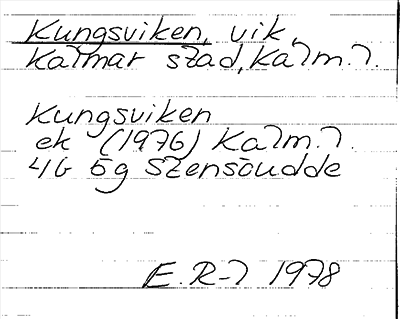 Kungsviken, vik,
Kalmar stad, Kalm. l.
Kungsviken
ek (1976) Kalm. l.
4G 5g Stensöudde
E. R-l 1978